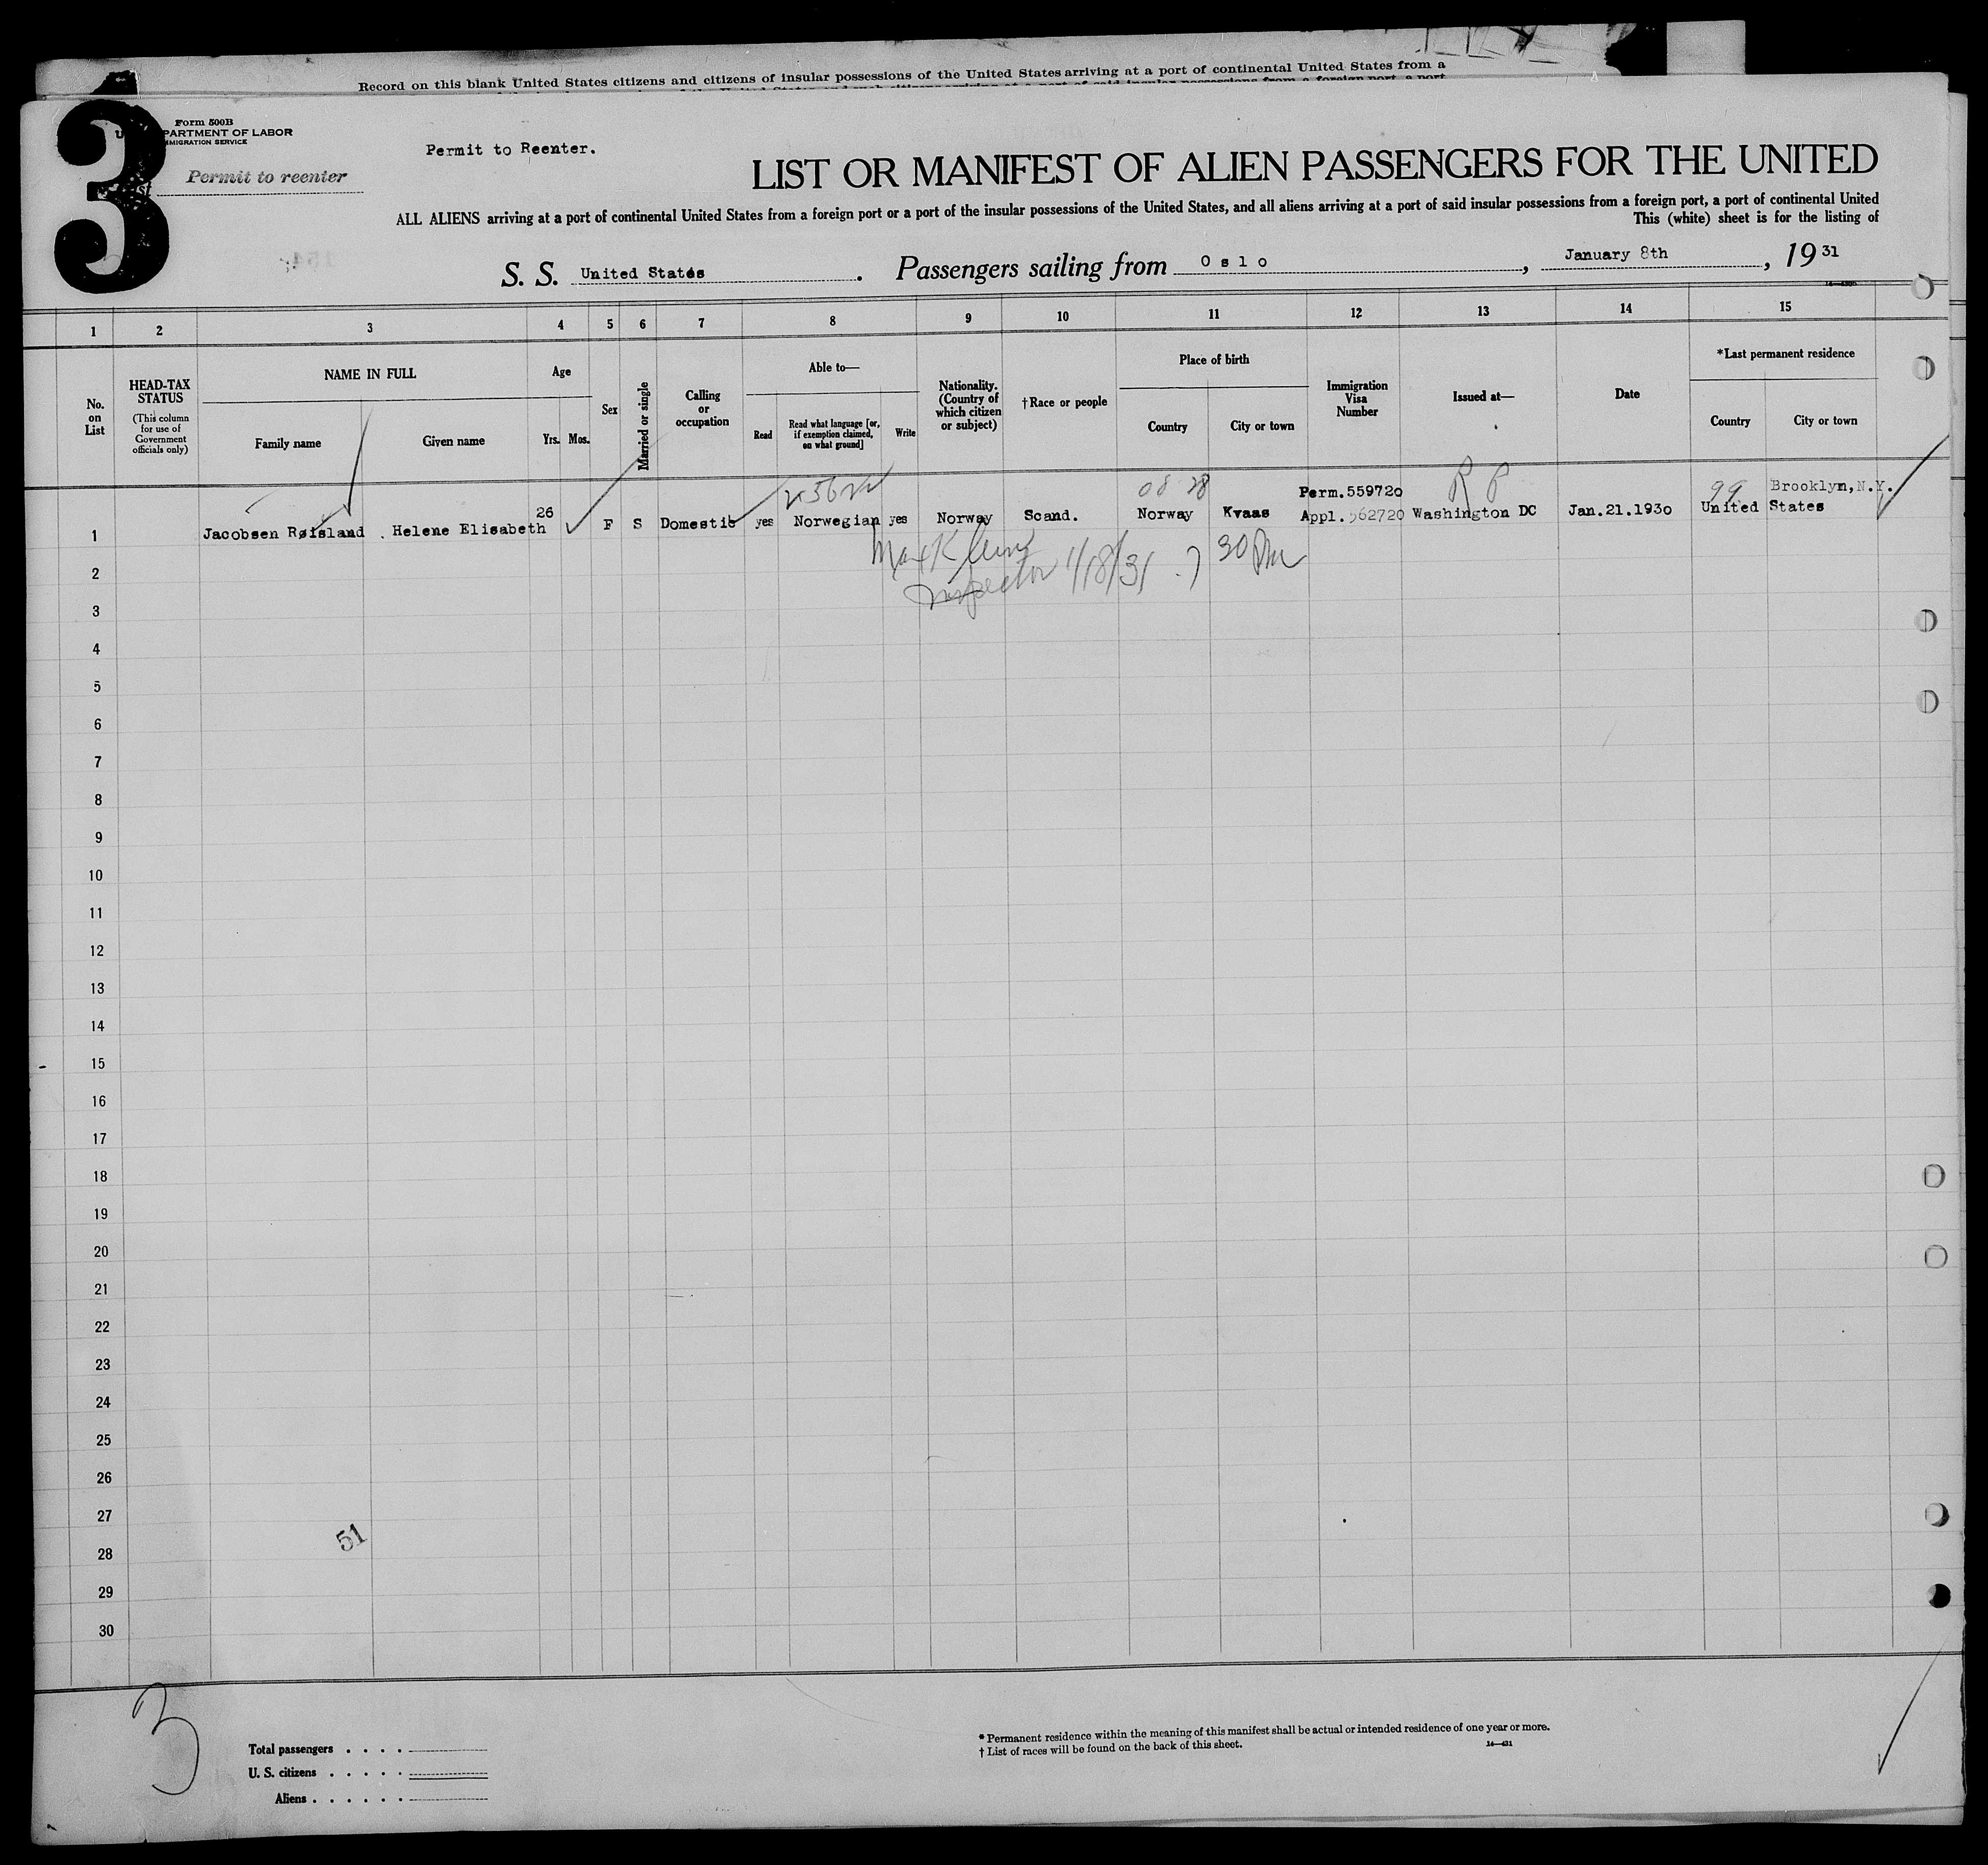 Record on this blank United States citizens and citizens of insular possessions of the United States arriving at a port of continental United States from a
3
Form 500B
U. S. DEPARTMENT OF LABOR
IMMIGRATION SERVICE
Permit to reenter
Permit to Reenter.
LIST OR MANIFEST OF ALIEN PASSENGERS FOR THE UNITED
ALL ALIENS arriving at a port of continental United States from a foreign port or a port of the insular possessions of the United States, and all aliens arriving at a port of said insular possessions from a foreign port, a port of continental United
This (white) sheet is for the listing of
S. S. United States. Passengers sailing from Oslo, January 8th, 1931
1 2 3 4 5 6 7 8 9 10 11 12 13 14 15
No. on List
HEAD-TAX STATUS
(This column for use of Government officials only)
NAME IN FULL
Family name
Given name
Age
Yrs. Mos.
Sex
Married or single
Calling or occupation
Able to—
Read
Read what language [or, if exemption claimed, on what ground]
Write
Nationality. (Country of which citizen or subject)
†Race or people
Place of birth
Country
City or town
Immigration Visa Number
Issued at—
Date
*Last permanent residence
Country
City or town
08 28
R P
99
Perm.559720
Brooklyn, N.Y.
1 Jacobsen Røisland . Helene Elisabeth 26 F S Domestic yes Norwegian yes Norway Scand. Norway Kvaas Appl.562720 Washington DC Jan.21.1930 United States
Inspector 1/18/31 . 7 30 PM
2
3
4
5
6
7
8
9
10
11
12
13
14
15
16
17
18
19
20
21
22
23
24
25
26
27
51
28
29
30
3
Total passengers . . . .
U. S. citizens . . . . .
Aliens . . . . . .
* Permanent residence within the meaning of this manifest shall be actual or intended residence of one year or more.
† List of races will be found on the back of this sheet.
14—431